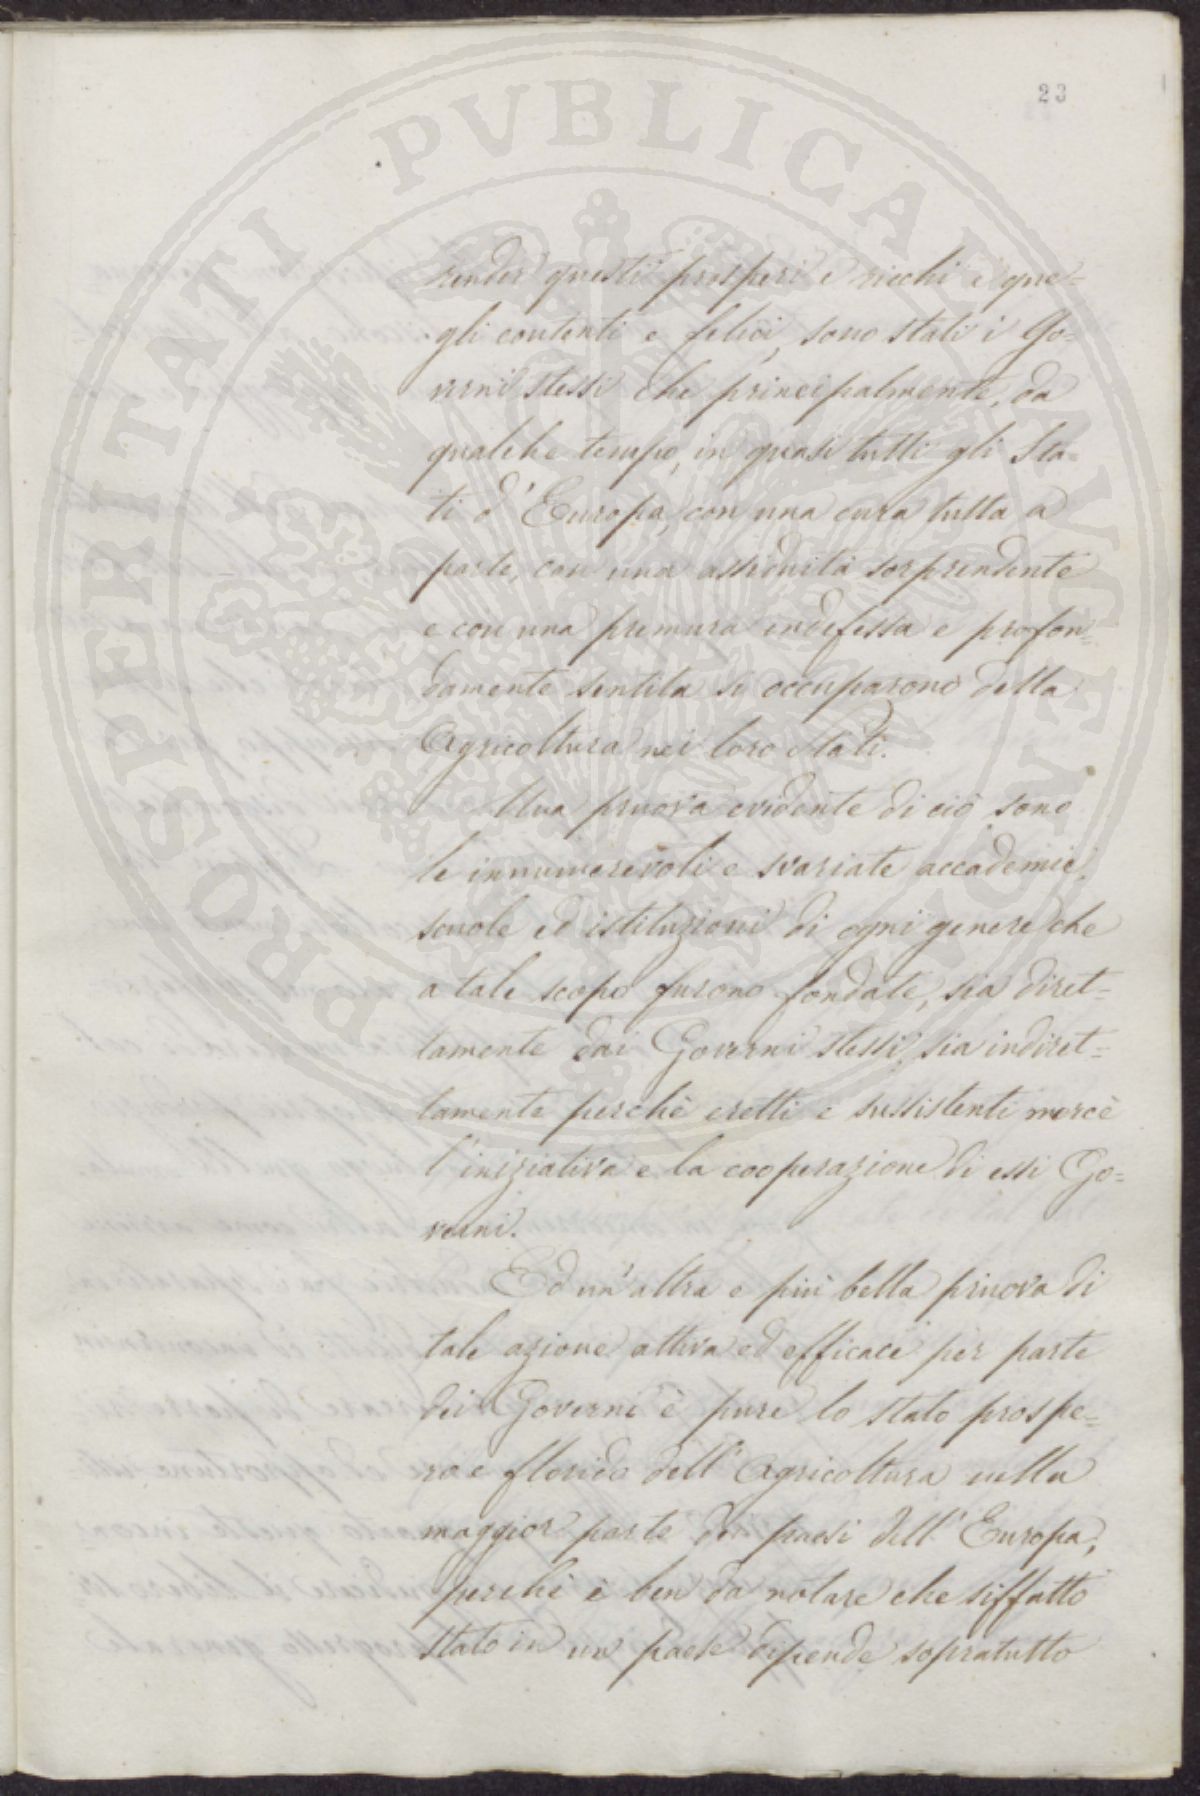 23
PROSPERITATI PVBLICAE AVGENDAE
render questi prosperi e ricchi e que=
gli contenti e felici, sono stati i Go=
verni stessi che principalmente, da
qualche tempo, in quasi tutti gli Sta=
ti d'Europa, con una cura tutta a
parte, con una assiduità sorprendente
e con una premura indefessa e profon=
damente sentita si occuparono della
Agricoltura nei loro stati.
Una pruova evidente di ciò sono
le innumerevoli e svariate accademie,
scuole ed istituzioni di ogni genere che
a tale scopo furono fondate, sia diret=
tamente dai Governi stessi, sia indiret=
tamente perchè eretti e sussistenti mercè
l'iniziativa e la cooperazione di essi Go=
verni.
Ed un'altra e più bella pruova di
tale azione attiva ed efficace per parte
dei Governi è pure lo stato prospe=
ro e florido dell'Agricoltura nella
maggior parte dei paesi dell'Europa,
perchè è ben da notare che siffatto
stato in un paese dipende sopratutto